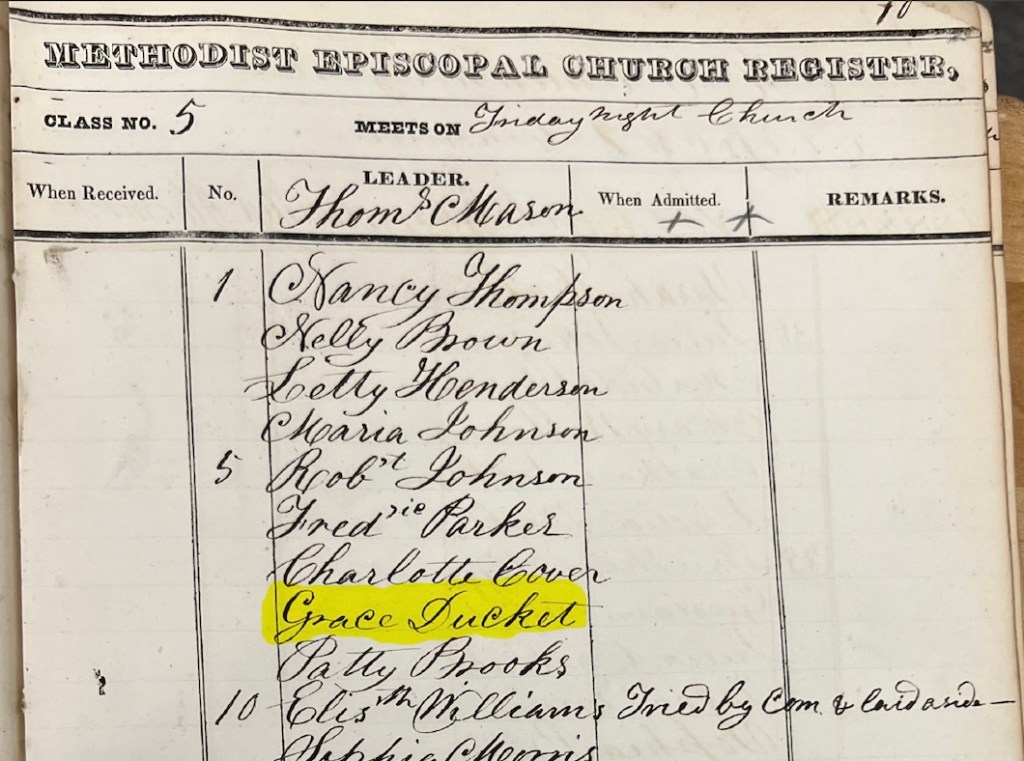 10
METHODIST EPISCOPAL CHURCH REGISTER,
CLASS NO. 5 MEETS ON Friday night Church
When Received. No. LEADER. When Admitted. REMARKS.
Thoms Mason
1 Nancy Thompson
Nelly Brown
Letty Henderson
Maria Johnson
5 Robt Johnson
Fredrie Parker
Charlotte Cover
Grace Ducket
Patty Brooks
10 Elisth Williams Tried by Com. & laid aside —
Sophia Morris